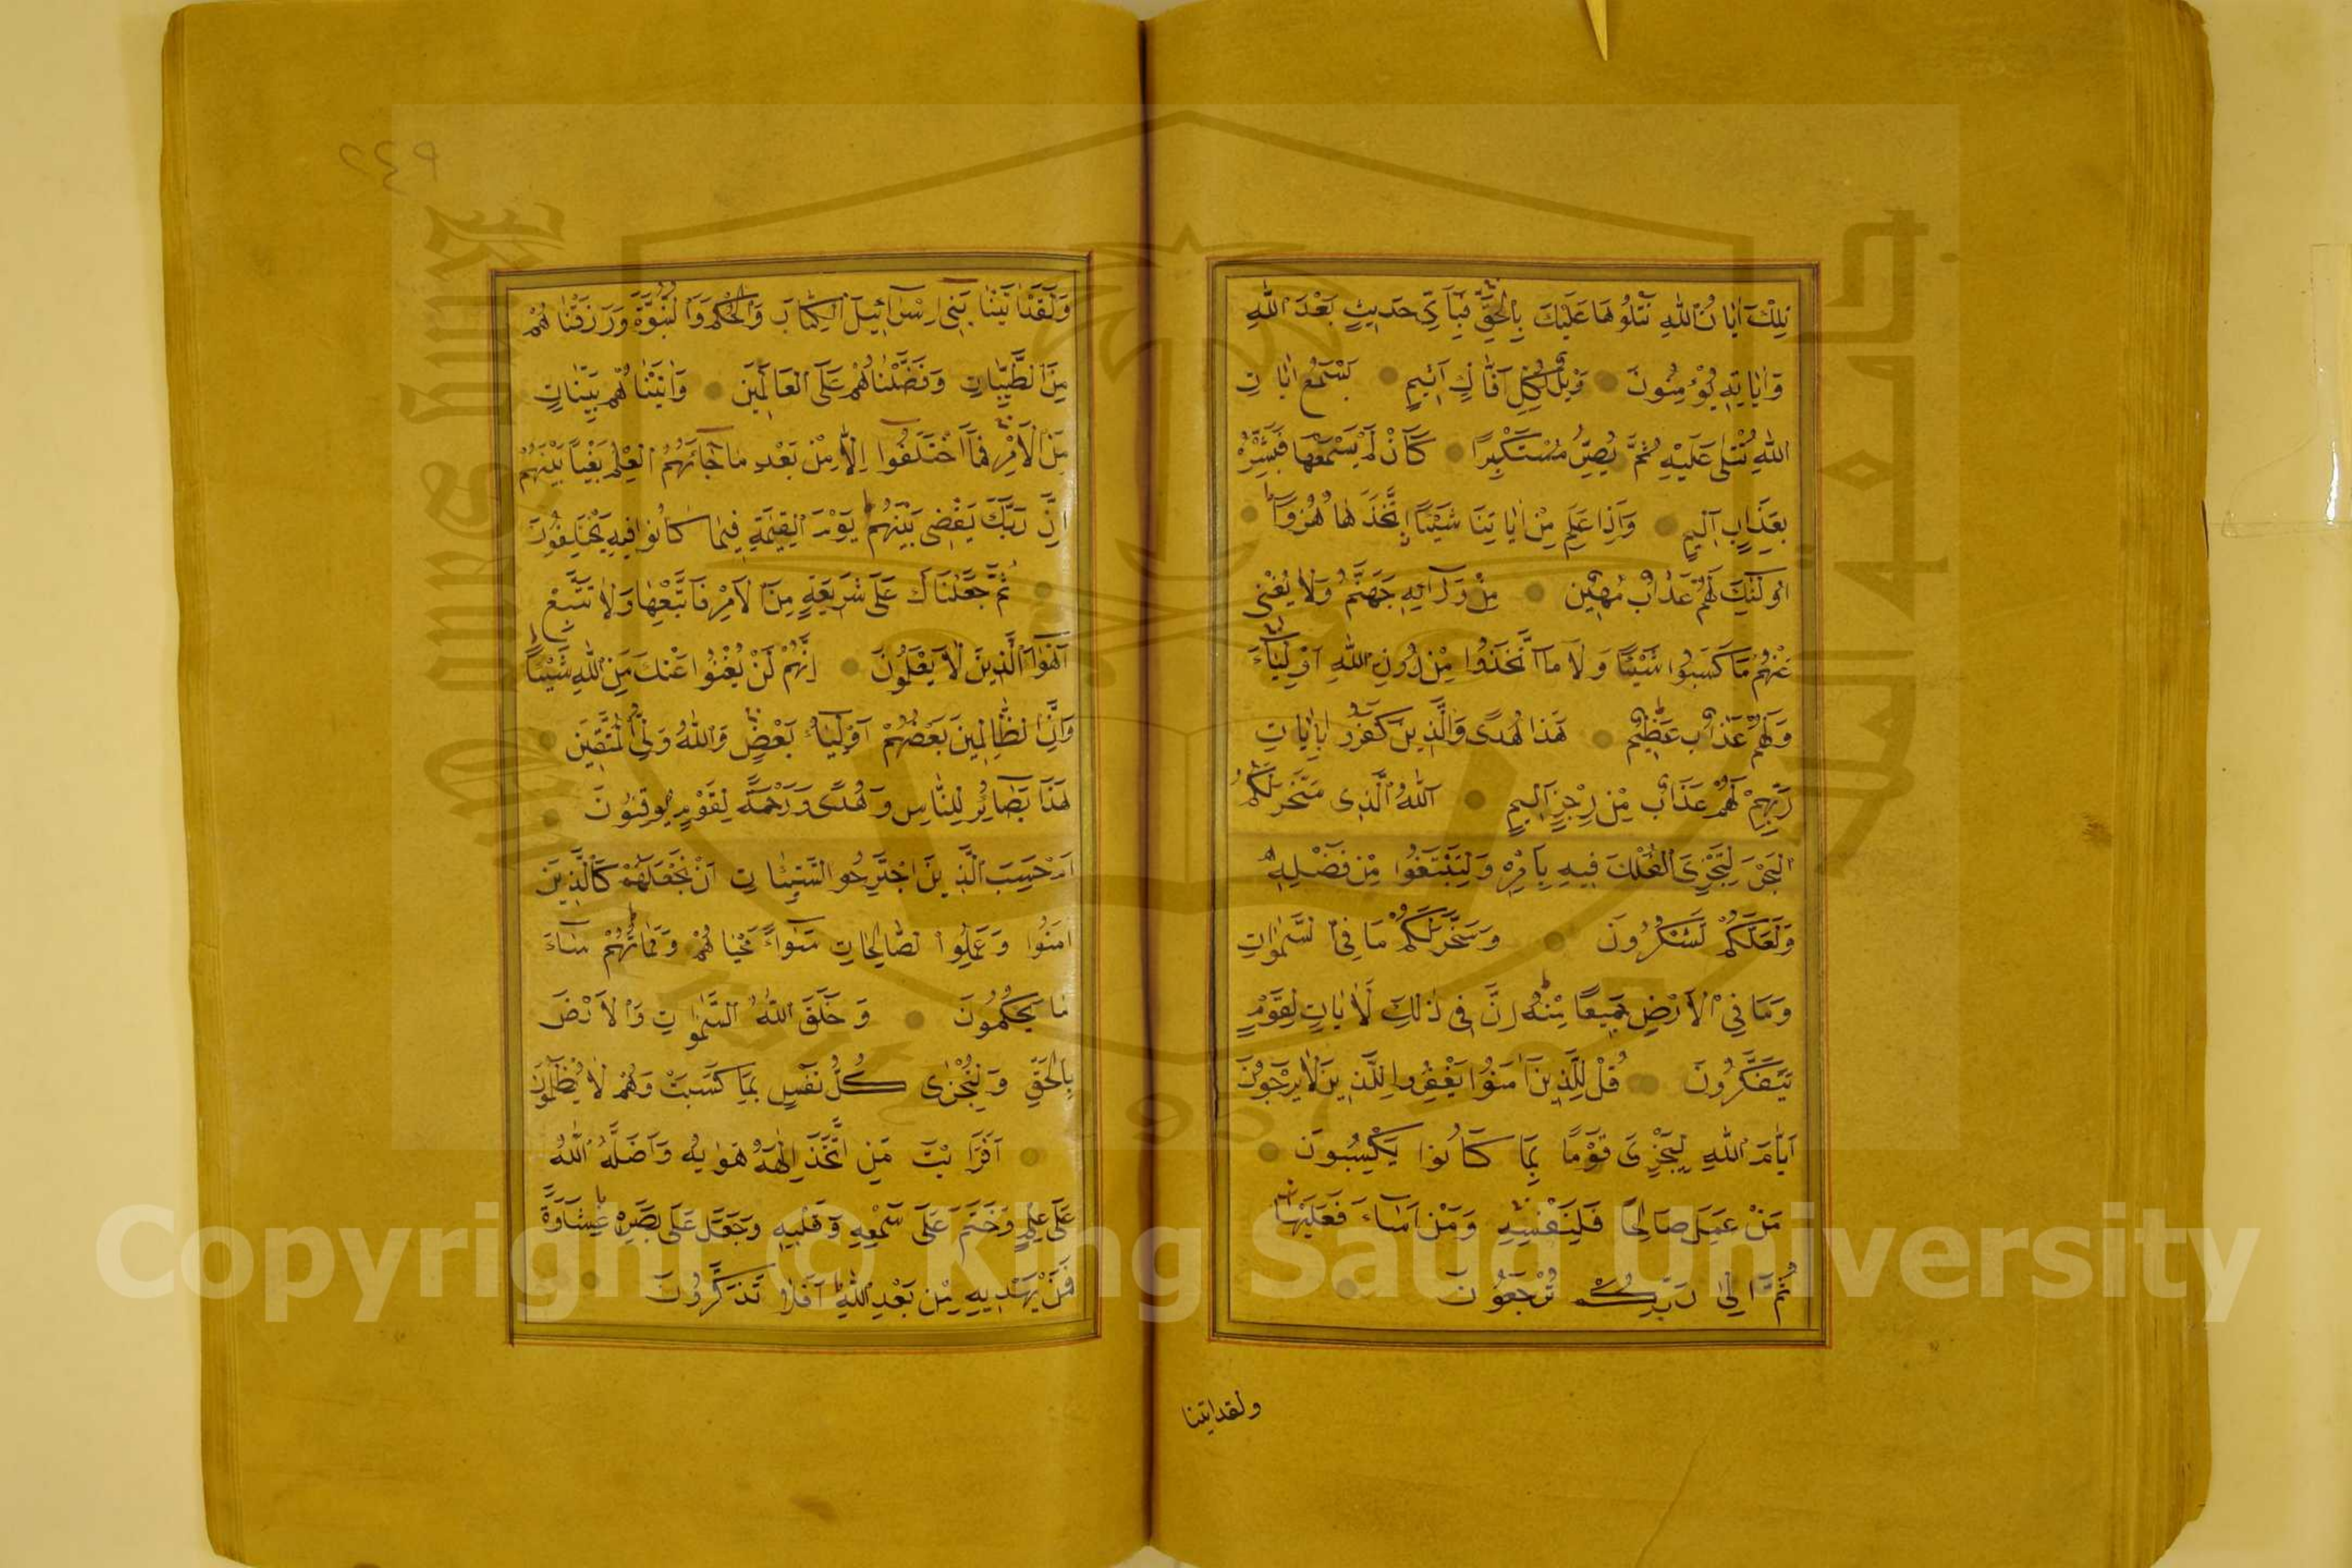 تِلْكَ اٰيَاتُ اللّٰهِ نَتْلُوهَا عَلَيْكَ بِالْحَقِّ فَبِاَىِّ حَدِيثٍ بَعْدَ اللّٰهِ
وَاٰيَاتِهِ يُؤْمِنُونَ وَيْلٌ لِكُلِّ اَفَّاكٍ اَثِيمٍ يَسْمَعُ اٰيَاتِ
اللّٰهِ تُتْلٰى عَلَيْهِ ثُمَّ يُصِرُّ مُسْتَكْبِرًا كَاَنْ لَمْ يَسْمَعْهَا فَبَشِّرْهُ
بِعَذَابٍ اَلِيمٍ وَاِذَا عَلِمَ مِنْ اٰيَاتِنَا شَيْئًا اِتَّخَذَهَا هُزُوًا
اُولٰئِكَ لَهُمْ عَذَابٌ مُهِينٌ مِنْ وَرَائِهِ جَهَنَّمُ وَلَا يُغْنِى
عَنْهُمْ مَا كَسَبُوا شَيْئًا وَلَا مَا اتَّخَذُوا مِنْ دُونِ اللّٰهِ اَوْلِيَاءَ
وَلَهُمْ عَذَابٌ عَظِيمٌ هٰذَا هُدًى وَالَّذِينَ كَفَرُوا بِاٰيَاتِ
رَبِّهِمْ لَهُمْ عَذَابٌ مِنْ رِجْزٍ اَلِيمٍ اَللّٰهُ الَّذِى سَخَّرَ لَكُمُ
الْبَحْرَ لِتَجْرِىَ الْفُلْكُ فِيهِ بِاَمْرِهِ وَلِتَبْتَغُوا مِنْ فَضْلِهِ
وَلَعَلَّكُمْ تَشْكُرُونَ وَسَخَّرَ لَكُمْ مَا فِى السَّمٰوَاتِ
وَمَا فِى الْاَرْضِ جَمِيعًا مِنْهُ اِنَّ فِى ذٰلِكَ لَاٰيَاتٍ لِقَوْمٍ
يَتَفَكَّرُونَ قُلْ لِلَّذِينَ اٰمَنُوا يَغْفِرُوا لِلَّذِينَ لَا يَرْجُونَ
اَيَّامَ اللّٰهِ لِيَجْزِىَ قَوْمًا بِمَا كَانُوا يَكْسِبُونَ
مَنْ عَمِلَ صَالِحًا فَلِنَفْسِهِ وَمَنْ اَسَاءَ فَعَلَيْهَا
ثُمَّ اِلٰى رَبِّكُمْ تُرْجَعُونَ
ولقد اتينا
٩٤٢
وَلَقَدْ اٰتَيْنَا بَنِى اِسْرَائِيلَ الْكِتَابَ وَالْحُكْمَ وَالنُّبُوَّةَ وَرَزَقْنَاهُمْ
مِنَ الطَّيِّبَاتِ وَفَضَّلْنَاهُمْ عَلَى الْعَالَمِينَ وَاٰتَيْنَاهُمْ بَيِّنَاتٍ
مِنَ الْاَمْرِ فَمَا اخْتَلَفُوا اِلَّا مِنْ بَعْدِ مَا جَاءَهُمُ الْعِلْمُ بَغْيًا بَيْنَهُمْ
اِنَّ رَبَّكَ يَقْضِى بَيْنَهُمْ يَوْمَ الْقِيٰمَةِ فِيمَا كَانُوا فِيهِ يَخْتَلِفُونَ
ثُمَّ جَعَلْنَاكَ عَلٰى شَرِيعَةٍ مِنَ الْاَمْرِ فَاتَّبِعْهَا وَلَا تَتَّبِعْ
اَهْوَاءَ الَّذِينَ لَا يَعْلَمُونَ اِنَّهُمْ لَنْ يُغْنُوا عَنْكَ مِنَ اللّٰهِ شَيْئًا
وَاِنَّ الظَّالِمِينَ بَعْضُهُمْ اَوْلِيَاءُ بَعْضٍ وَاللّٰهُ وَلِىُّ الْمُتَّقِينَ
هٰذَا بَصَائِرُ لِلنَّاسِ وَهُدًى وَرَحْمَةٌ لِقَوْمٍ يُوقِنُونَ
اَمْ حَسِبَ الَّذِينَ اجْتَرَحُوا السَّيِّئَاتِ اَنْ نَجْعَلَهُمْ كَالَّذِينَ
اٰمَنُوا وَعَمِلُوا الصَّالِحَاتِ سَوَاءً مَحْيَاهُمْ وَمَمَاتُهُمْ سَاءَ
مَا يَحْكُمُونَ وَخَلَقَ اللّٰهُ السَّمٰوَاتِ وَالْاَرْضَ
بِالْحَقِّ وَلِتُجْزٰى كُلُّ نَفْسٍ بِمَا كَسَبَتْ وَهُمْ لَا يُظْلَمُونَ
اَفَرَاَيْتَ مَنِ اتَّخَذَ اِلٰهَهُ هَوٰيهُ وَاَضَلَّهُ اللّٰهُ
عَلٰى عِلْمٍ وَخَتَمَ عَلٰى سَمْعِهِ وَقَلْبِهِ وَجَعَلَ عَلٰى بَصَرِهِ غِشَاوَةً
فَمَنْ يَهْدِيهِ مِنْ بَعْدِ اللّٰهِ اَفَلَا تَذَكَّرُونَ
Copyright © King Saud University